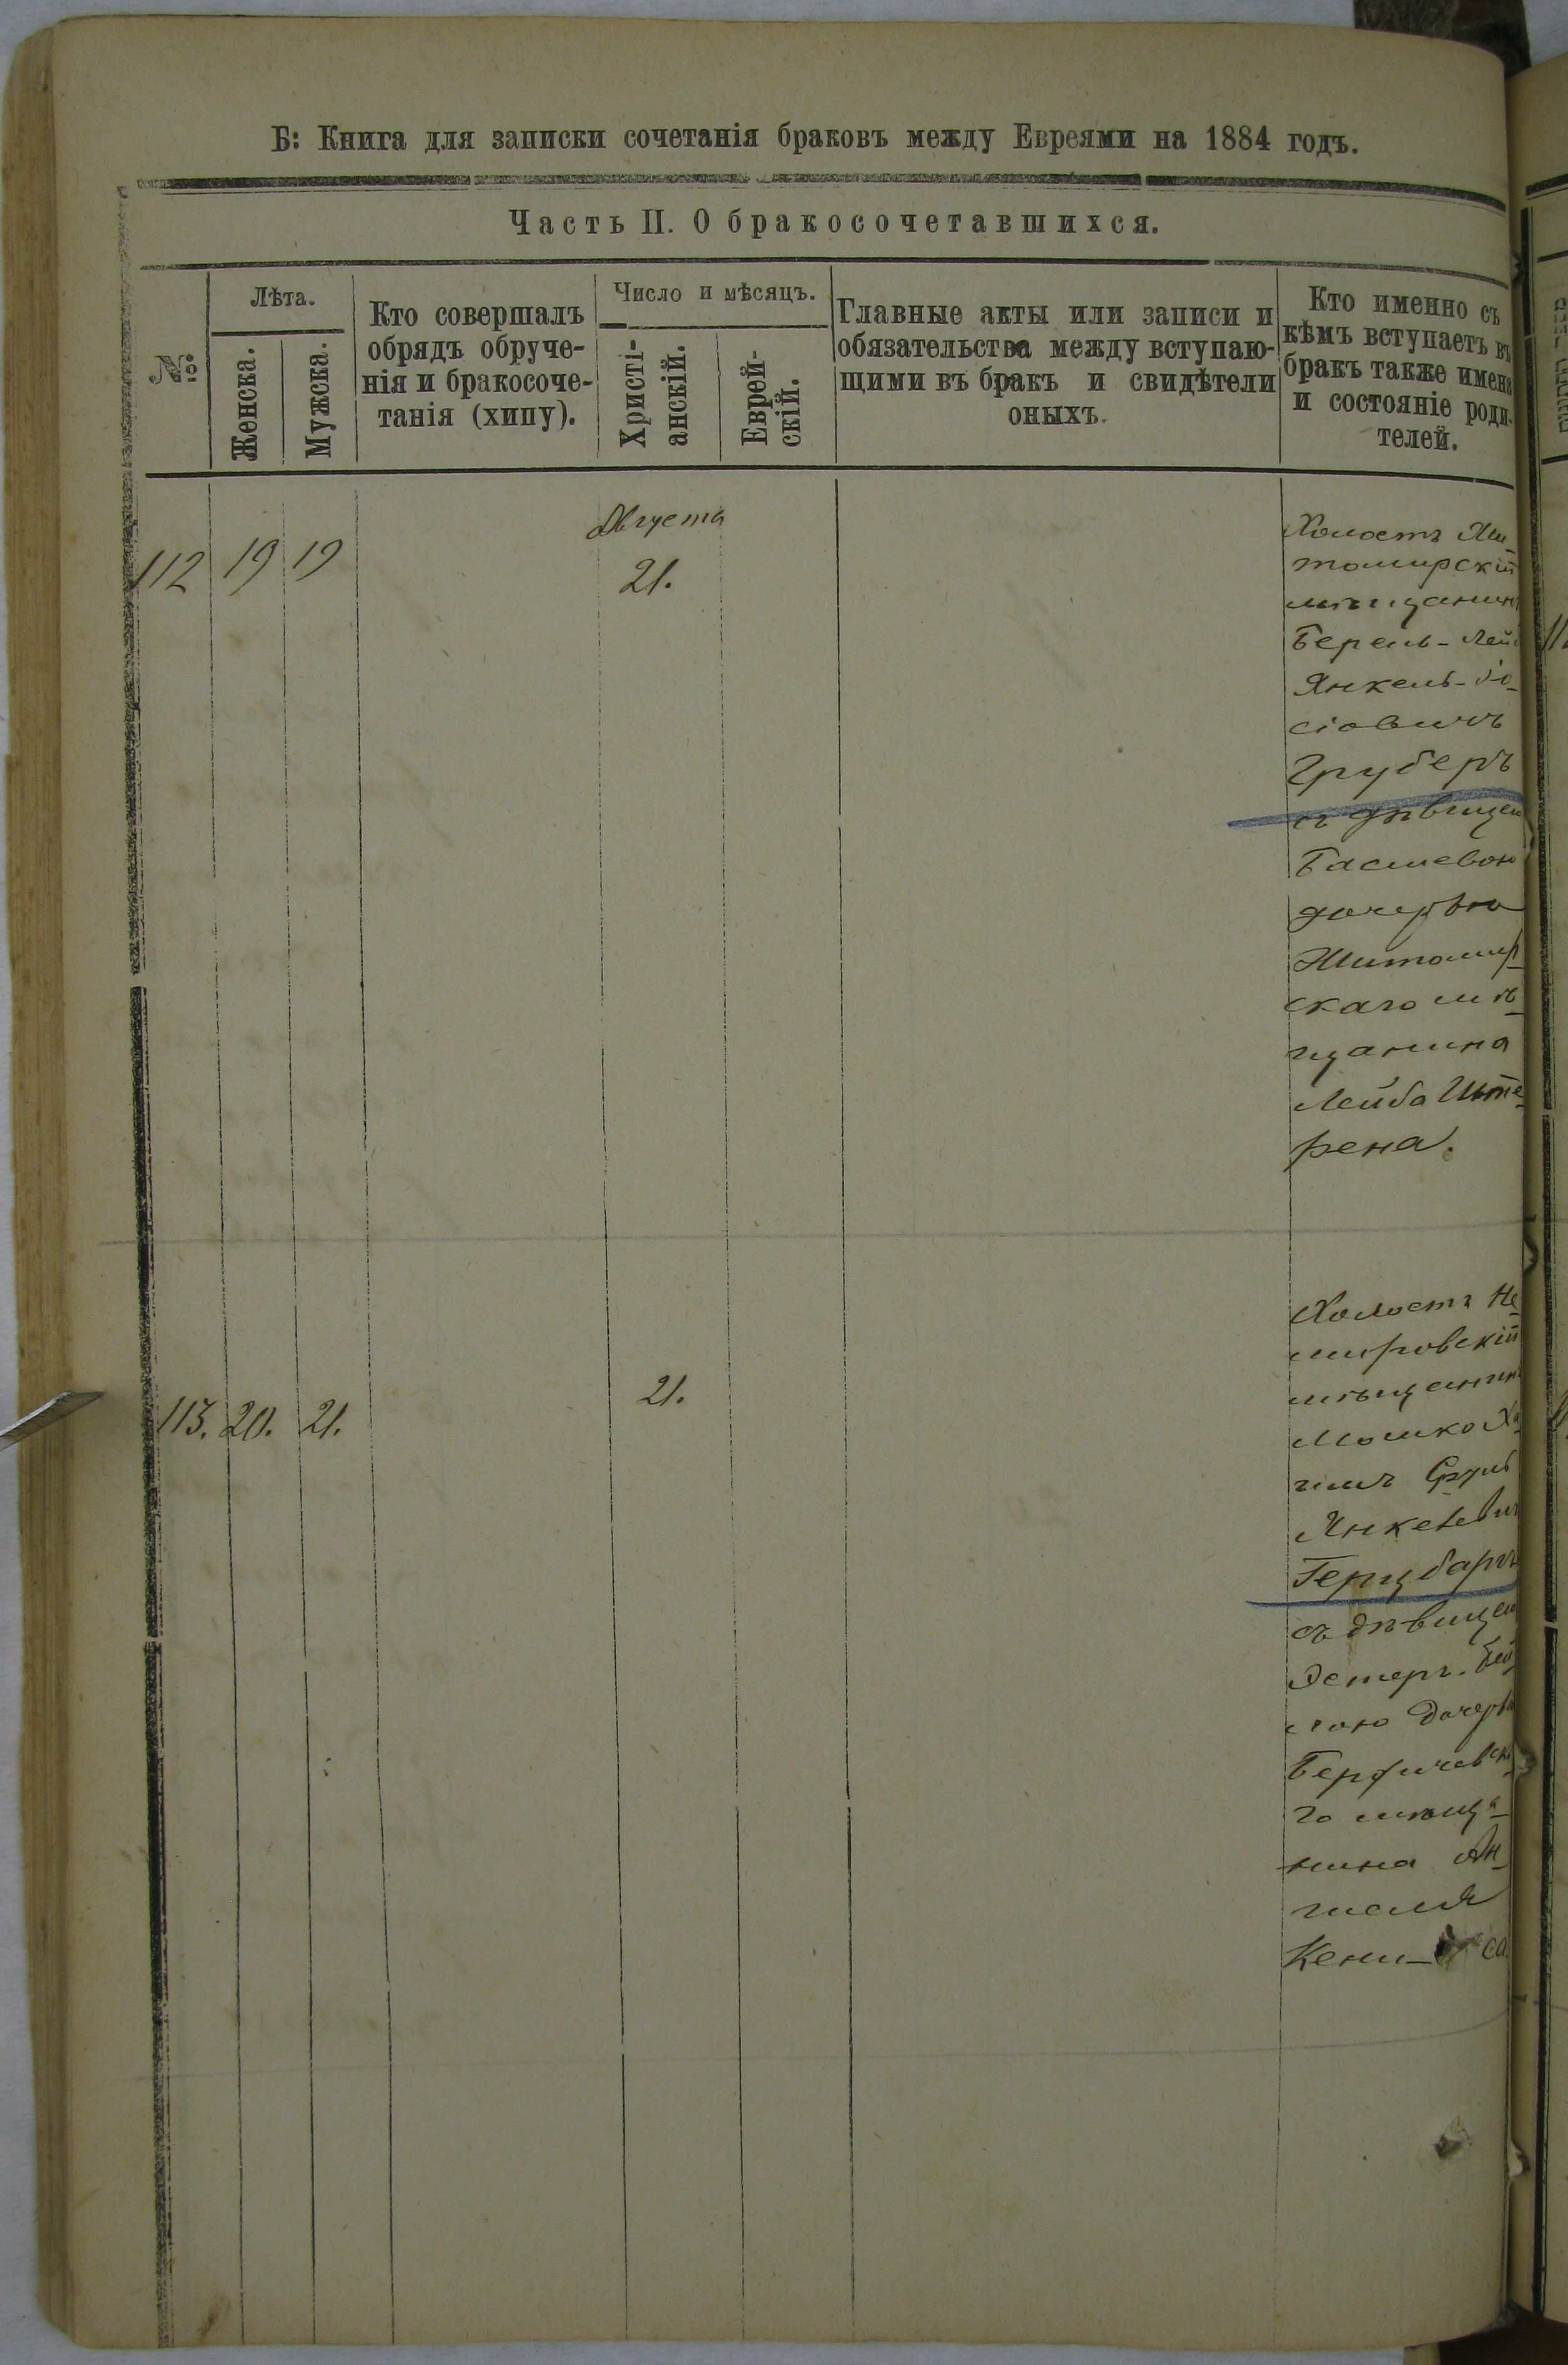 Б: Книга для записки сочетанія браковъ между Евреями на 1884 годъ.
Часть II. О бракосочетавшихся.
№
Лѣта.
Женска.
Мужска.
Кто совершалъ
обрядъ обруче-
нія и бракосоче-
танія (хипу).
Число и мѣсяцъ.
Христі-
анскій.
Еврей-
скій.
Главные акты или записи и
обязательства между вступаю-
щими въ бракъ и свидѣтели
оныхъ.
Кто именно съ
кѣмъ вступаетъ въ
бракъ также имена
и состояніе роди-
телей.
Августа
112 19 19 21.
Холостъ Жи-
томирскій
мѣщанинъ
Берель-Лейб
Янкель-Іо-
сіовичъ
Груберъ
съ дѣвицею
Басшевою
дочерью
Житомир-
скаго мѣ-
щанина
Лейба Ште-
рена.
113. 20. 21. 21.
Холостъ Не-
мировскій
мѣщанинъ
Мошко Ха-
имъ Сруль
Янкелевич
Герцбаргъ
съ дѣвицею
Эстеръ-Бей-
лою дочерью
Бердичевска-
го мѣща-
нина Ан-
шеля